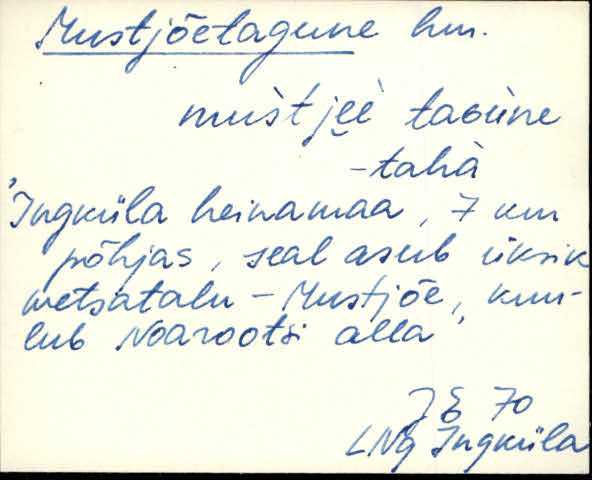 Mustjõetagune hm.
muśt́jɛ̮ɛ̀ taGùne
-tahà
"Ingküla heinamaa, 7 km
põhjas, seal asub üksik
metsatalu - Mustjõe, kuu-
lub Noarootsi alla"
J E 70
LNg Ingküla